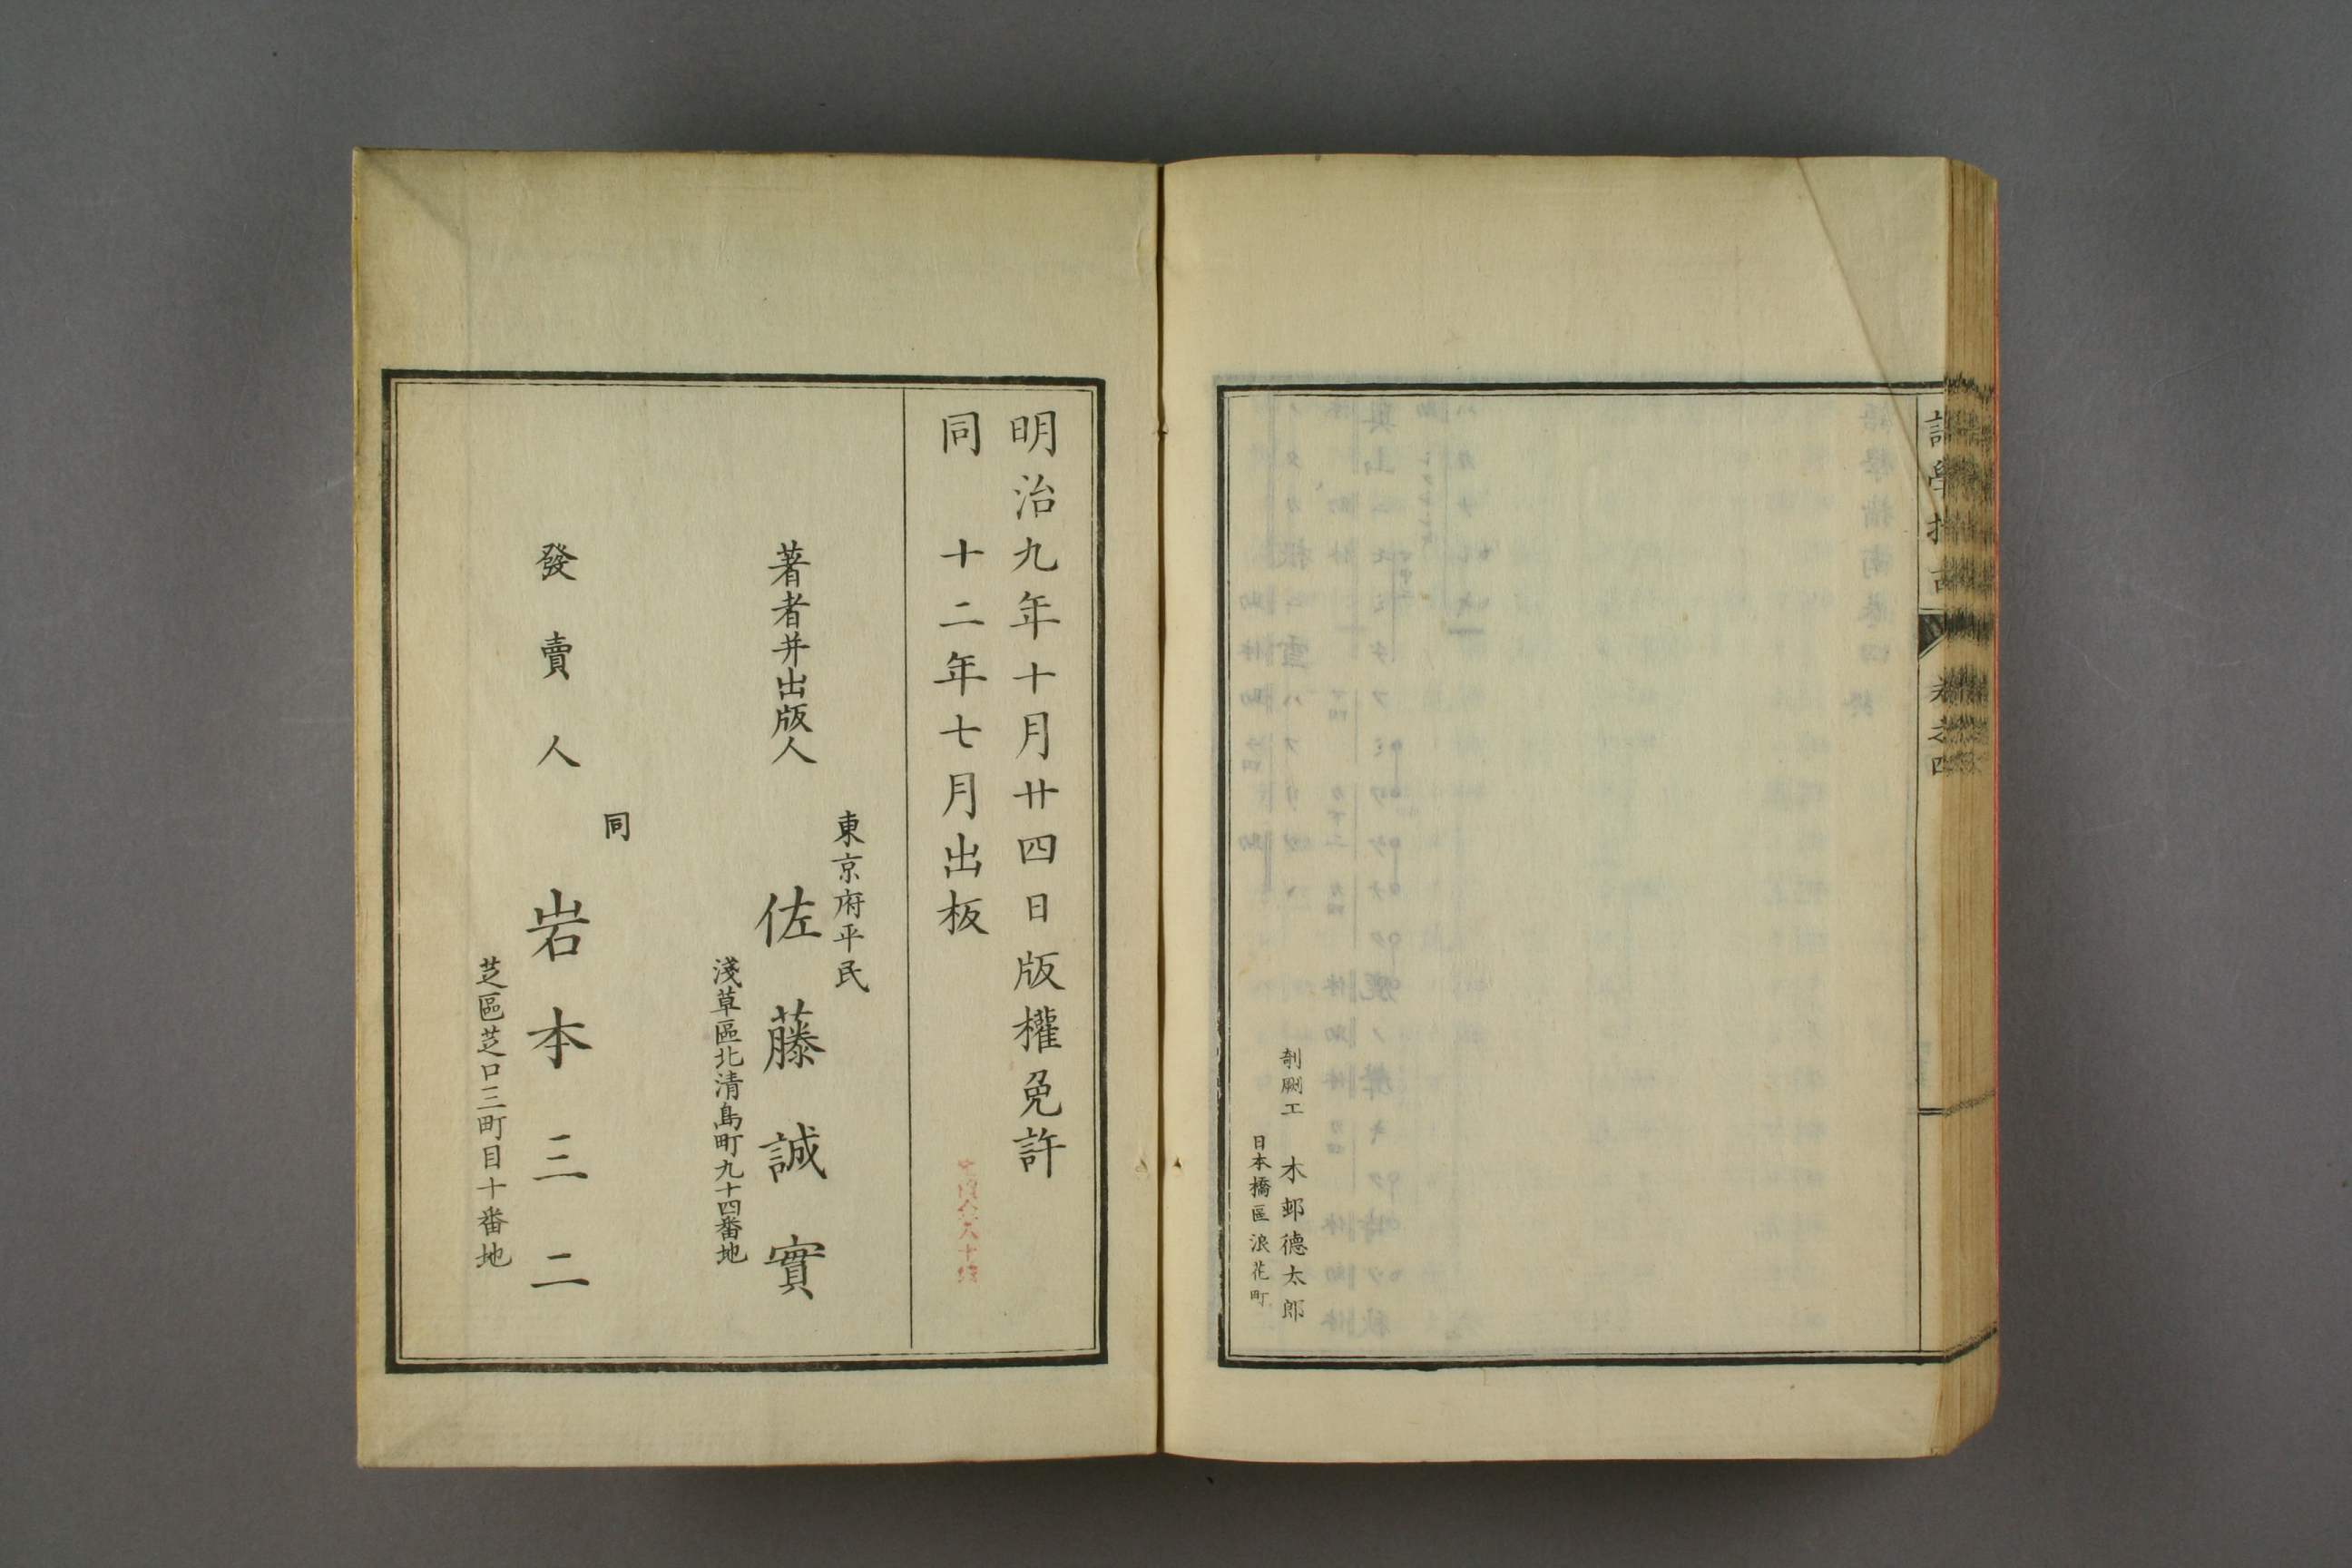 巻之四
剞劂工 木邨德太郎
日本橋區浪花町
明治九年十月廿四日版權免許
同 十二年七月出板
東京府平民
著者并出版人 佐藤誠實
淺草區北清島町九十四番地
同
發賣人 岩本三二
芝區芝口三町目十番地